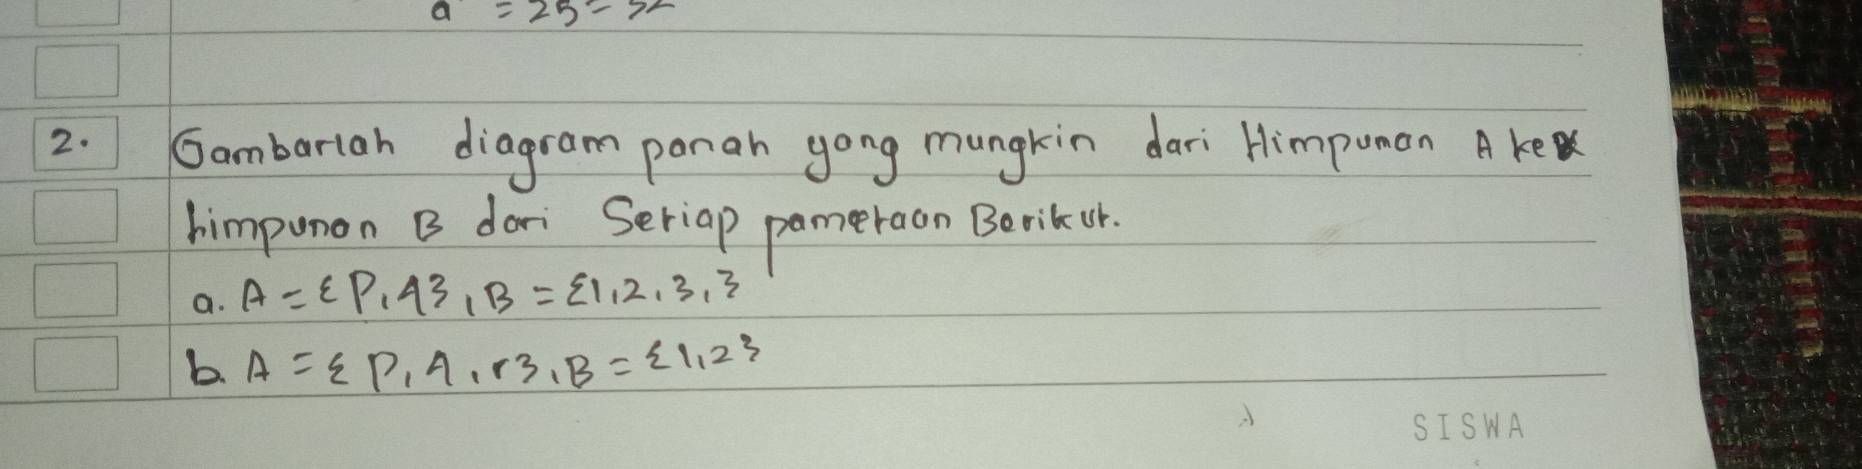 a = 25 - 
2. Gambarlah diagram panah yang mungkin dari Himpunan A ke
himpunan B dari Setiap pametaan Berikut.
a. A = {P, q}, B = {1, 2, 3, }
b. A = {P, q, r}, B = {1, 2}
SISWA